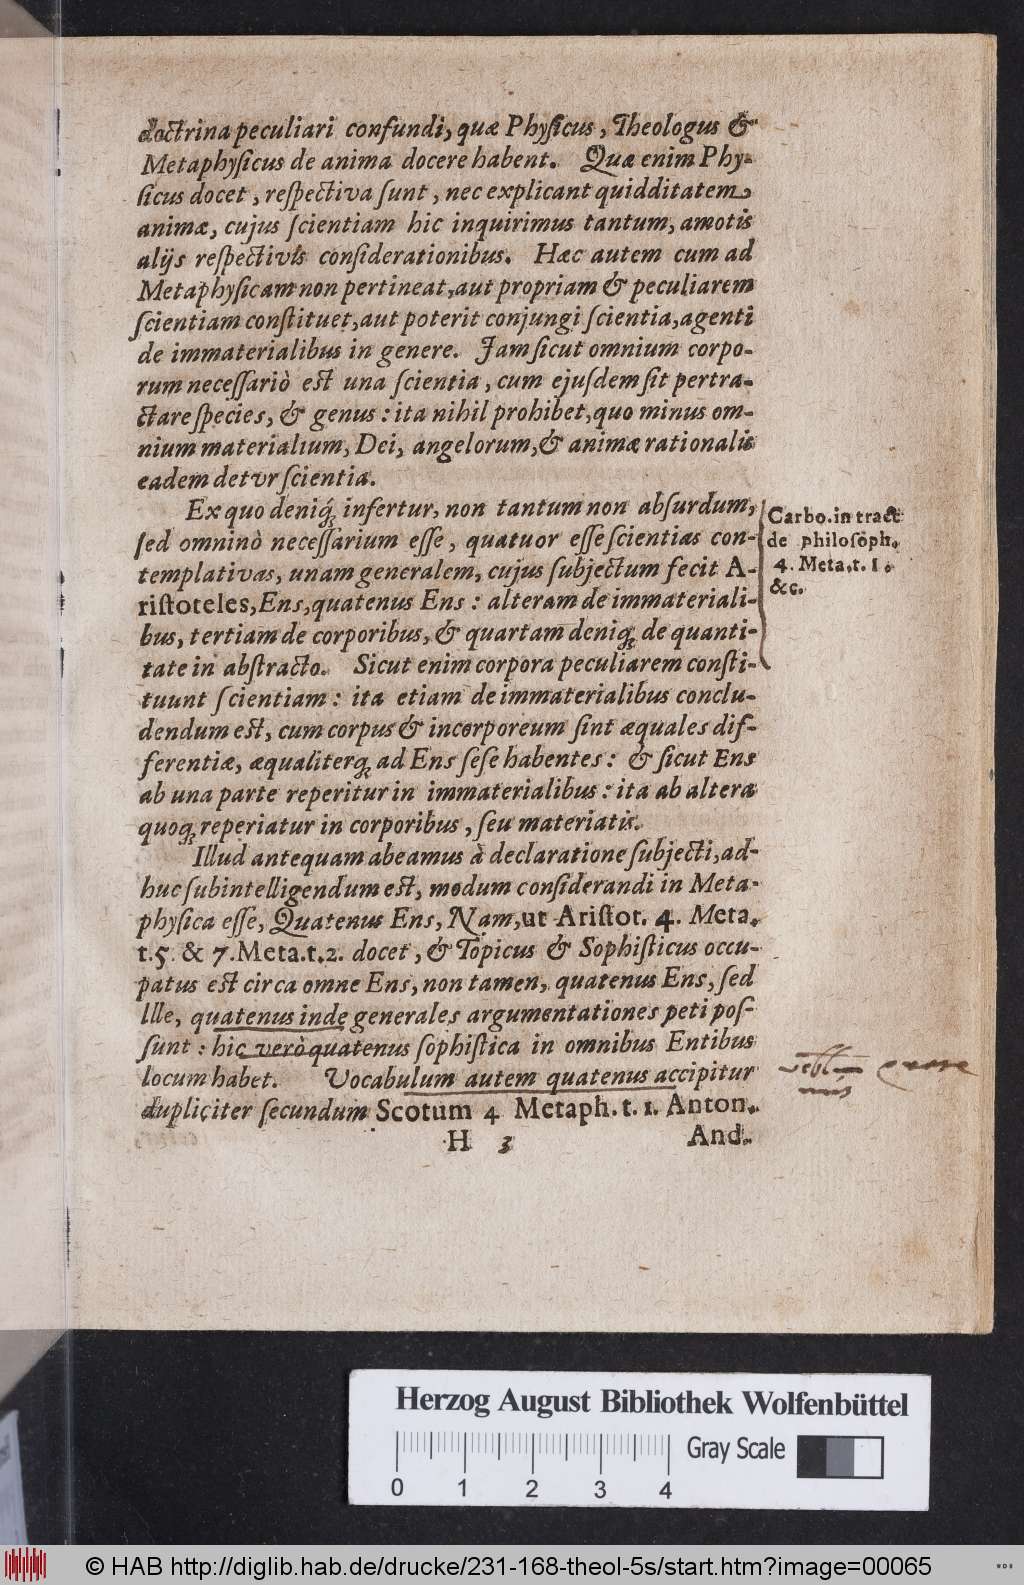 doctrina peculiari confundi, quæ Phyſicus, Theologus &
Metaphyſicus de anima docere habent. Quæ enim Phy-
ſicus docet, reſpectiva ſunt, nec explicant quidditatem
animæ, cujus ſcientiam hic inquirimus tantum, amotis
alijs reſpectivis conſiderationibus. Hæc autem cum ad
Metaphyſicam non pertineat, aut propriam & peculiarem
ſcientiam conſtituet, aut poterit conjungi ſcientia, agenti
de immaterialibus in genere. Jam ſicut omnium corpo-
rum neceſſariò eſt una ſcientia, cum ejuſdem ſit pertra-
ctare ſpecies, & genus: ita nihil prohibet, quo minus om-
nium materialium, Dei, angelorum, & animæ rationalis
eadem detvr ſcientia.
Ex quo deniq́; infertur, non tantum non abſurdum,
ſed omninò neceſſarium eſſe, quatuor eſſe ſcientias con-
templativas, unam generalem, cujus ſubjectum fecit A-
riſtoteles, Ens, quatenus Ens: alteram de immateriali-
bus, tertiam de corporibus, & quartam deniq; de quanti-
tate in abſtracto. Sicut enim corpora peculiarem conſti-
tuunt ſcientiam: ita etiam de immaterialibus conclu-
dendum eſt, cum corpus & incorporeum ſint æquales dif-
ferentiæ, æqualiterq; ad Ens ſeſe habentes: & ſicut Ens
ab una parte reperitur in immaterialibus: ita ab altera
quoq; reperiatur in corporibus, ſeu materiatis.
Illud antequam abeamus à declaratione ſubjecti, ad-
huc ſubintelligendum eſt, modum conſiderandi in Meta-
phyſica eſſe, Quatenus Ens, Nam, ut Ariſtot. 4. Meta.
t.5. & 7. Meta.t.2. docet, & Topicus & Sophiſticus occu-
patus eſt circa omne Ens, non tamen, quatenus Ens, ſed
Ille, quatenus inde generales argumentationes peti poſ-
ſunt: hic verò quatenus ſophiſtica in omnibus Entibus
locum habet. Vocabulum autem quatenus accipitur
dupliciter ſecundum Scotum 4 Metaph. t. 1. Anton.
H 3 And.
Carbo. in tract
de philoſoph.
4. Meta. t. 1.
&c.
Herzog August Bibliothek Wolfenbüttel
0 1 2 3 4 Gray Scale
© HAB http://diglib.hab.de/drucke/231-168-theol-5s/start.htm?image=00065